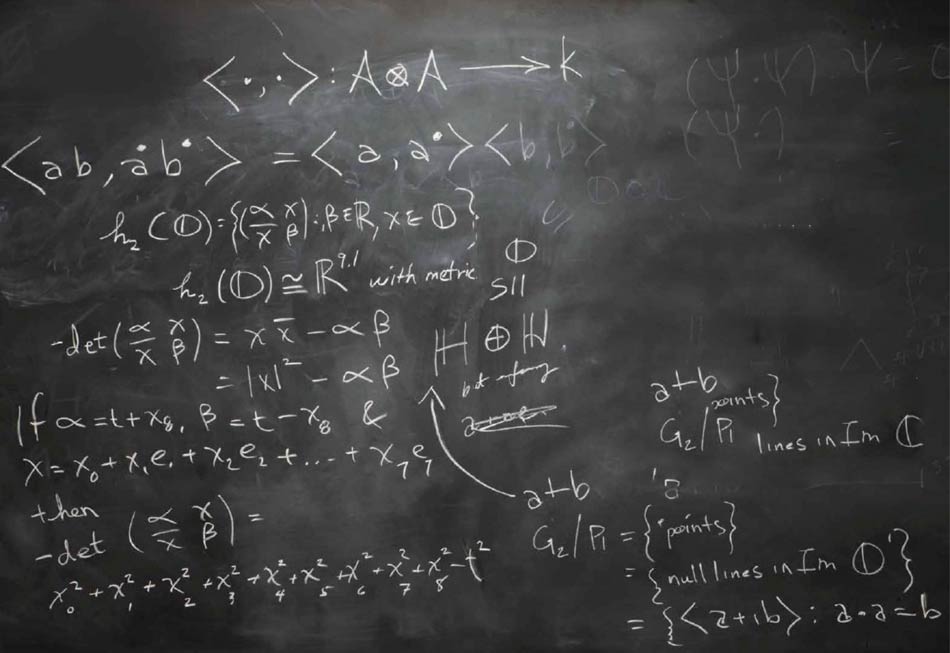 <·,·> : A⊗A ⟶ k
(ψ·ψ) ψ =
<ab, a˙b˙> = <a, a˙><b, b˙>
(ψ·)
=
h₂(𝕆) = {(α x / x̄ β) : β∈ℝ, x∈𝕆}
h₂(𝕆) ≅ ℝ^9.1 with metric
𝕆
SII
ℍ ⊕ ℍ.
-det(α x / x̄ β) = x x̄ − αβ
= |x|² − αβ
If α = t + x₈, β = t − x₈ &
x = x₀ + x₁e₁ + x₂e₂ + ... + x₇e₇
then
-det (α x / x̄ β) =
x₀² + x₁² + x₂² + x₃² + x₄² + x₅² + x₆² + x₇² + x₈² − t²
a+b
G₂/P₁ points}
lines in Im ℂ
a+b
G₂/P₁ = {'points}
= {null lines in Im 𝕆'}
= {<a+ıb> : a·a = b